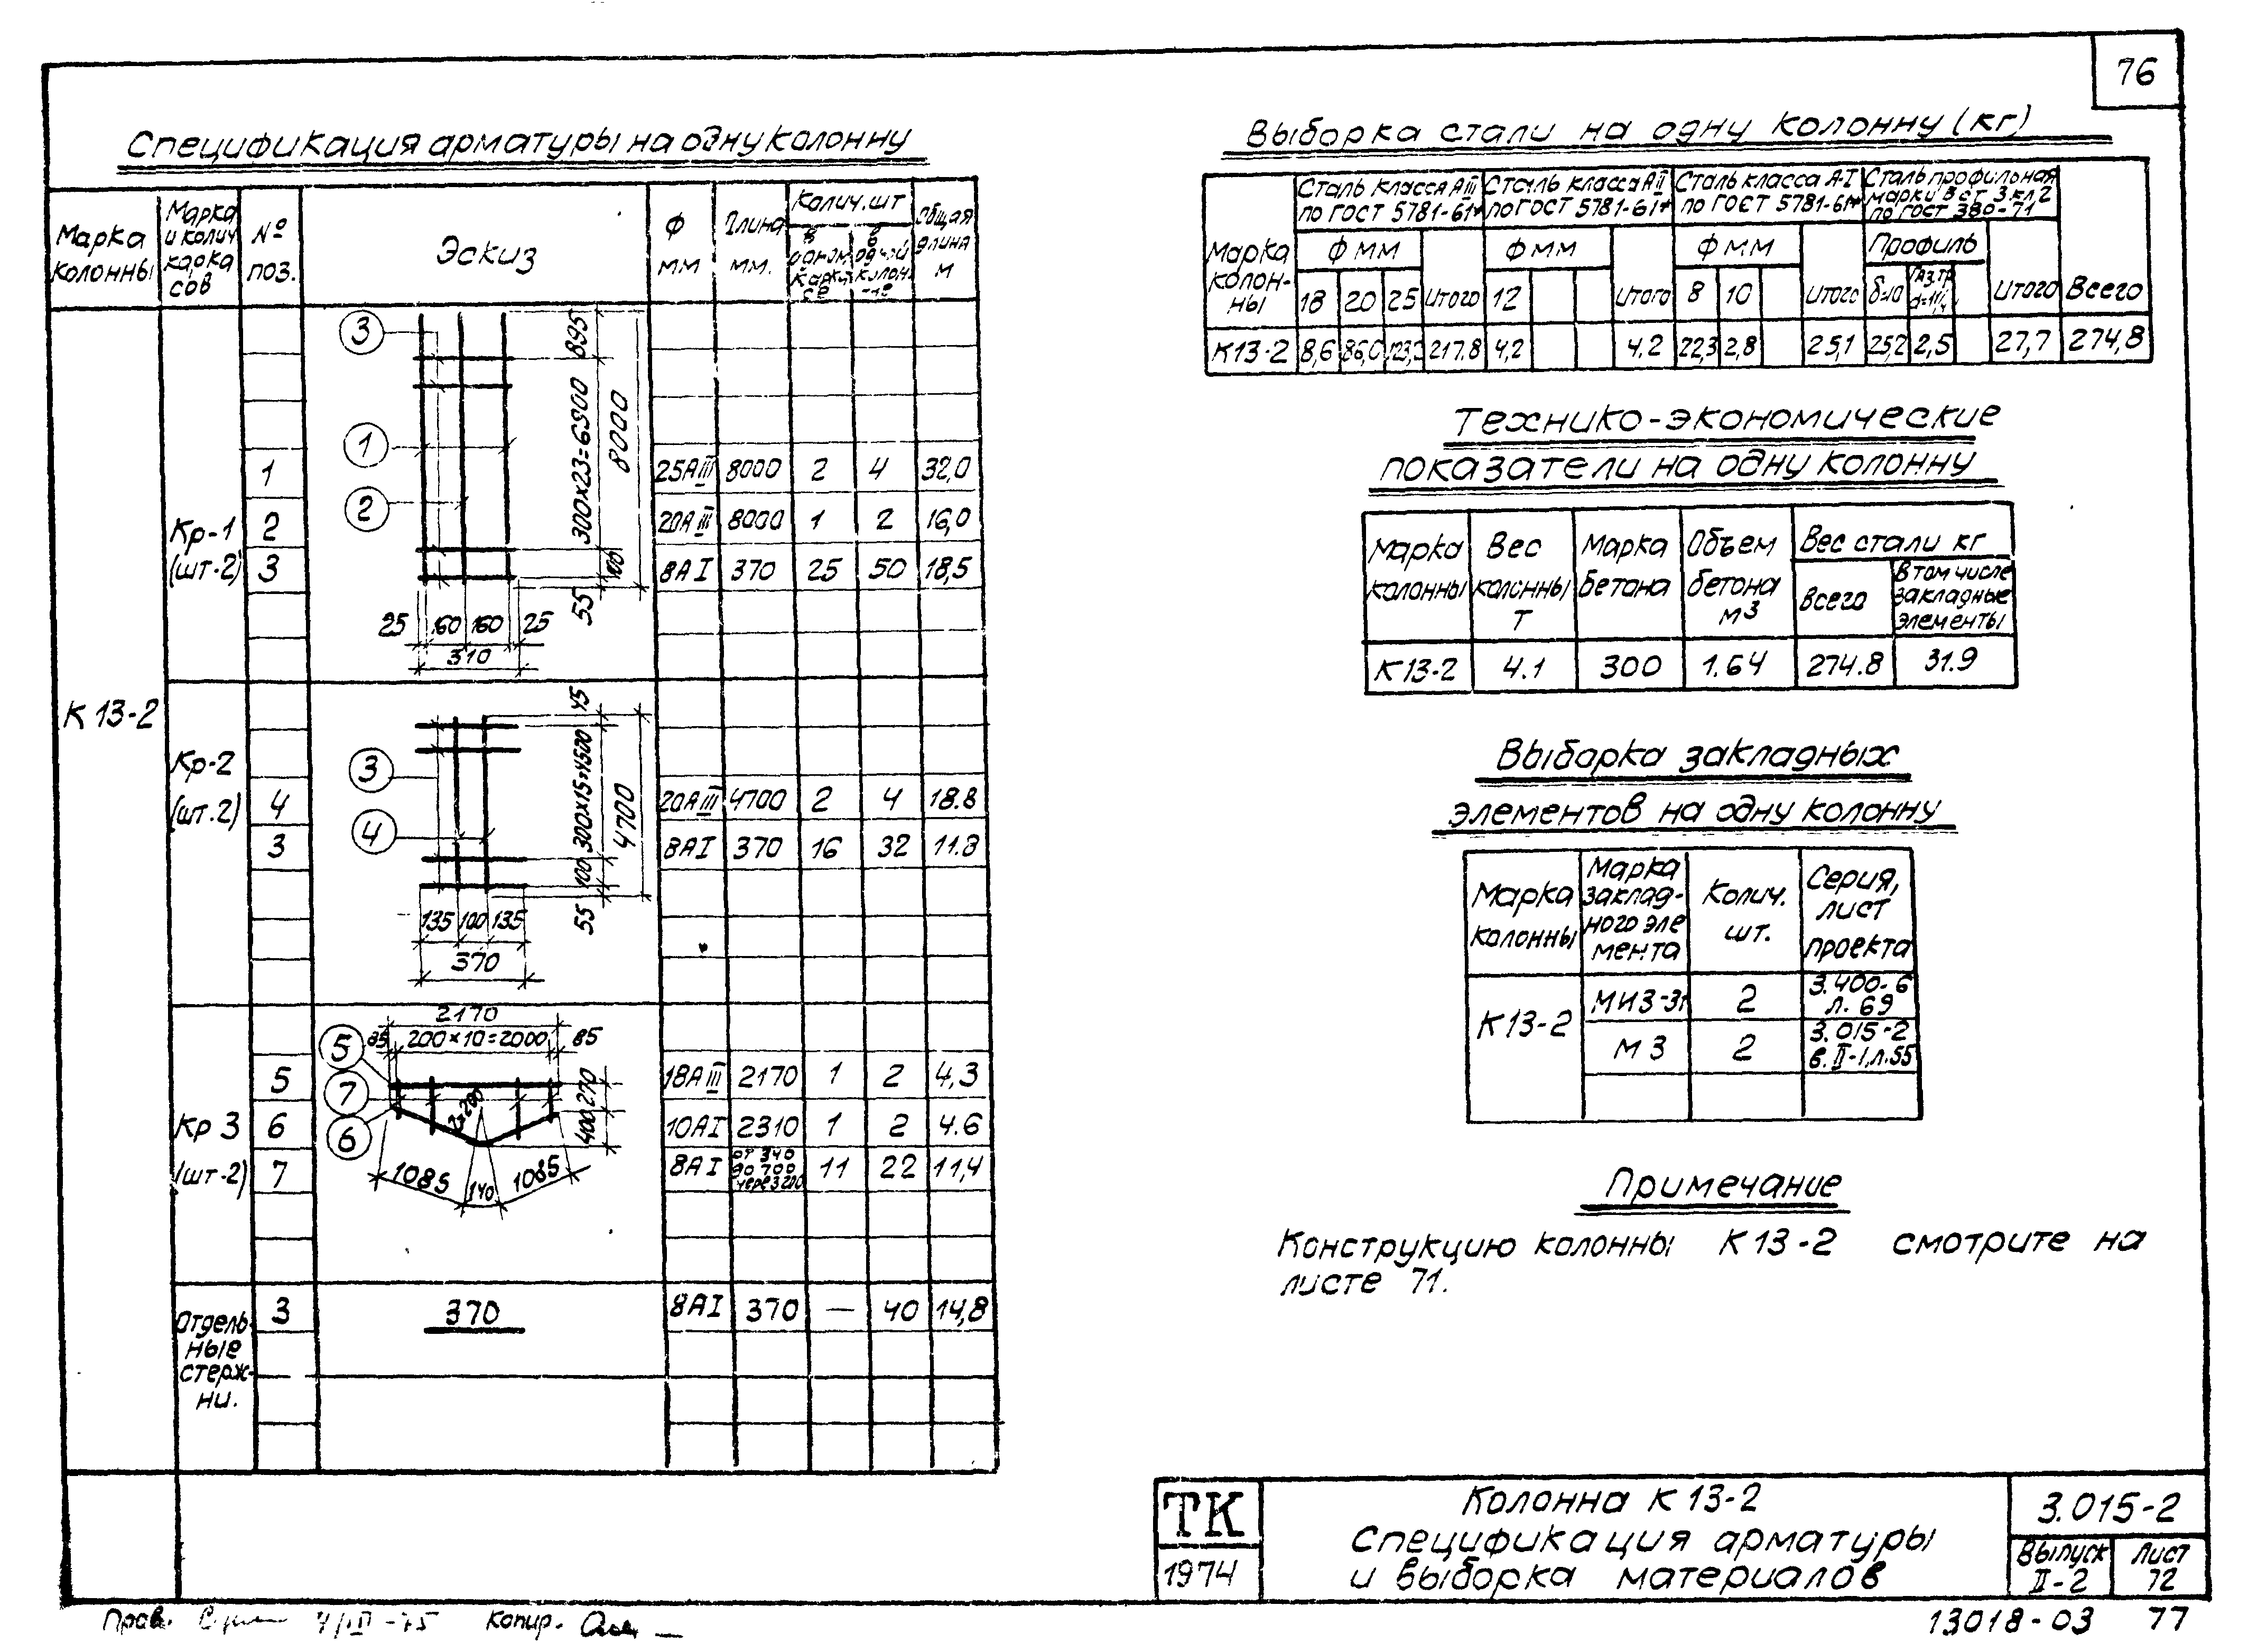 76
Спецификация арматуры на одну колонну
Марка колонны
Марка и колич каркасов
№ поз.
Эскиз
Ф мм
Длина мм.
Колич. шт
в одном каркасе
в одной колонне
Общая длина м
К 13-2
Кр-1 (шт-2)
1 25АIII 8000 2 4 32,0
2 20АIII 8000 1 2 16,0
3 8АI 370 25 50 18,5
3
1
2
895
300х23=6900
8000
100
55
25 160 160 25
310
Кр-2 (шт.2)
4 20АIII 4700 2 4 18.8
3 8АI 370 16 32 11.8
3
4
45
300х15=4500
4700
100
55
135 100 135
370
Кр 3 (шт-2)
5 18АIII 2170 1 2 4,3
6 10АI 2310 1 2 4.6
7 8АI от 340 до 700 через 200 11 22 11,4
2170
85 200×10=2000 85
5
7
6
270
400
1085 140 1085
Отдельные стержни.
3 370 8АI 370 — 40 14,8
Выборка стали на одну колонну (кг)
Марка колонны
Сталь класса АIII по ГОСТ 5781-61*
Сталь класса АII по ГОСТ 5781-61*
Сталь класса А-I по ГОСТ 5781-61*
Сталь профильная марки В ст 3 кл 2 по ГОСТ 380-71
Ф мм Ф мм Ф мм Профиль
18 20 25 Итого 12 Итого 8 10 Итого δ=10 Газ.тр. Итого Всего
К13-2 8,6 86,0 123,2 217.8 4,2 4.2 22,3 2,8 25,1 25,2 2,5 27,7 274,8
Технико-экономические
показатели на одну колонну
Марка колонны
Вес колонны т
Марка бетона
Объем бетона м3
Вес стали кг
Всего
В том числе закладные элементы
К 13-2 4.1 300 1.64 274.8 31.9
Выборка закладных
элементов на одну колонну
Марка колонны
Марка закладного элемента
Колич. шт.
Серия, лист проекта
К 13-2
МИ3-31 2 3.400-6 л. 69
М 3 2 3.015-2 в. II-1, л.55
Примечание
Конструкцию колонны К 13-2 смотрите на
листе 71.
ТК
1974
Колонна К 13-2
Спецификация арматуры
и выборка материалов
3.015-2
Выпуск II-2
Лист 72
Пров. 4/III-75 Копир.
13018-03 77